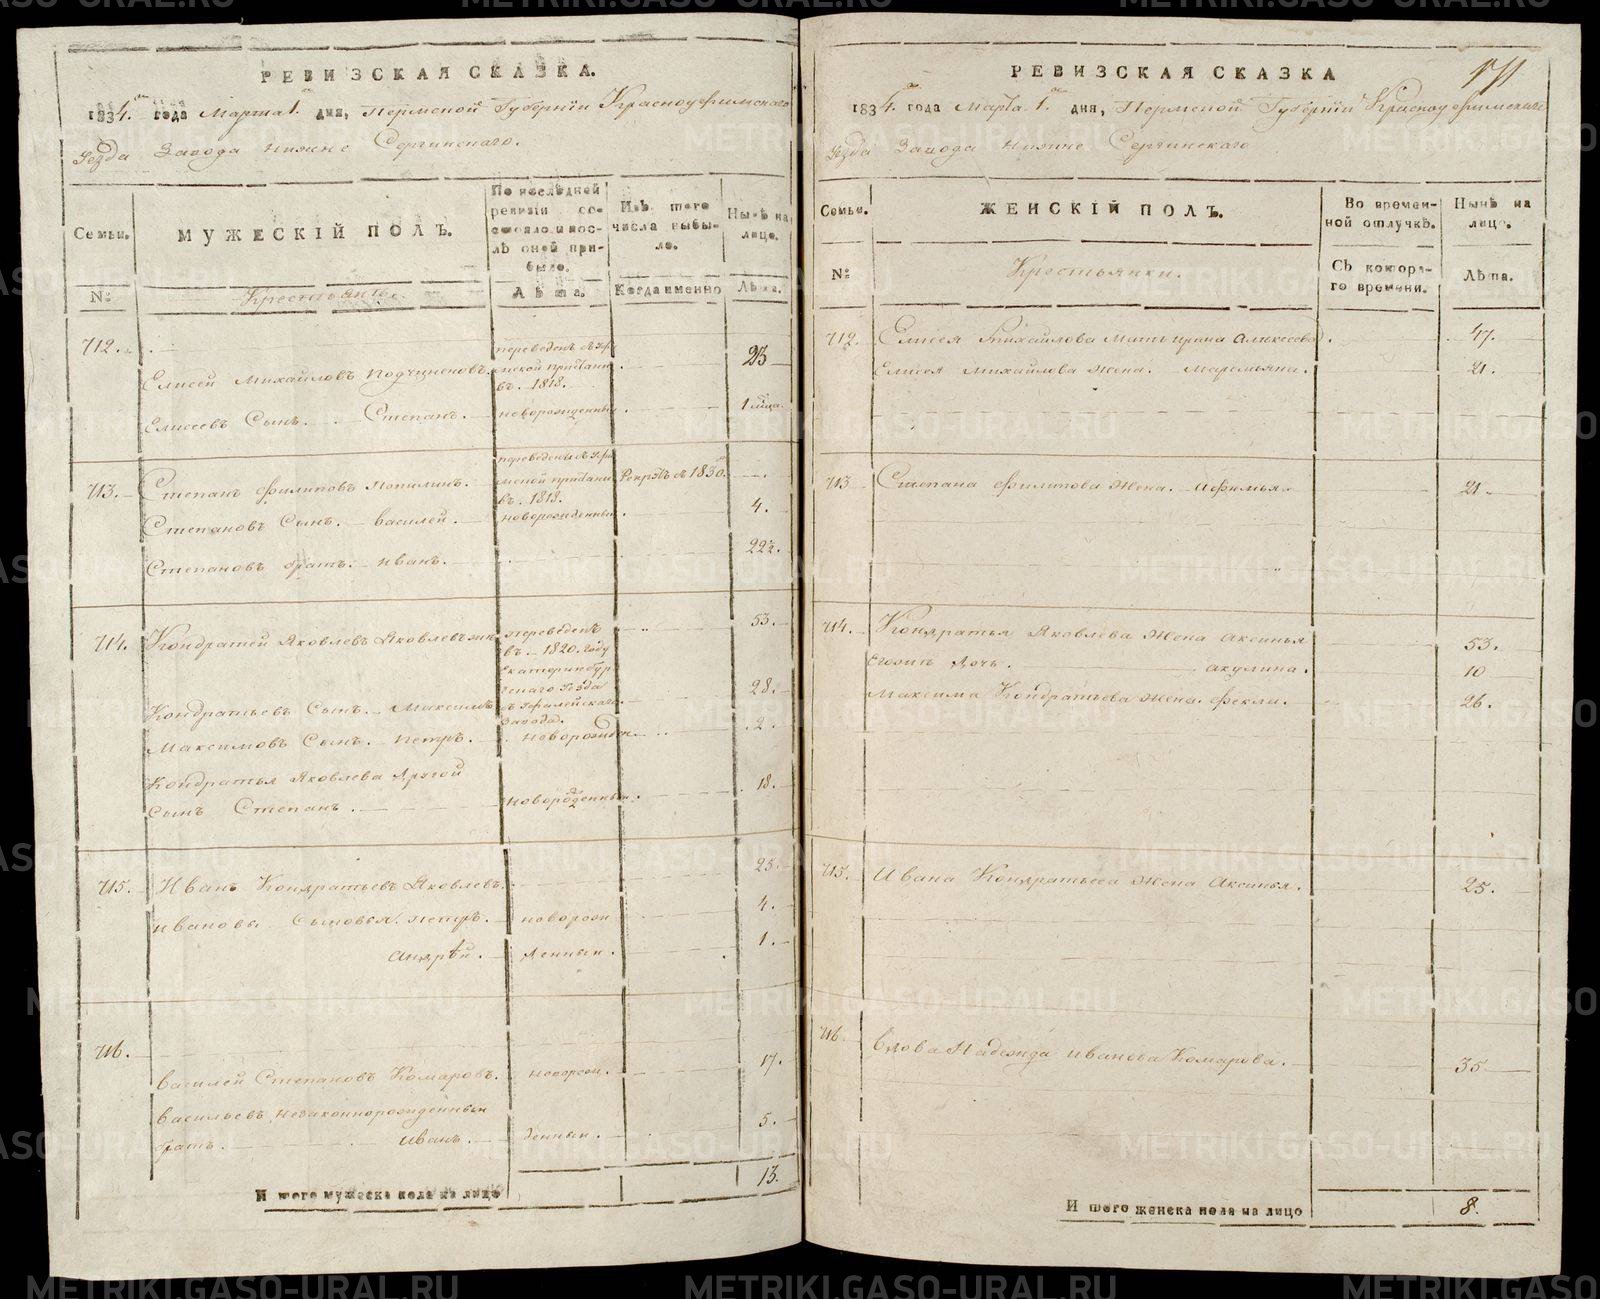 РЕВИЗСКАЯ СКАЗКА.
1834. года Марта 1. дня, Пермской Губернiи Красноуфимскаго
Уезда Завода Нижне Сергинскаго.
Семьи.
МУЖЕСКIЙ ПОЛЪ.
По последней ревизiи состояло и после оной прибыло.
Изъ того числа выбыло.
Ныне на лицо.
№
Крестьяне.
Лета.
Когда именно
Лета.
712.
Елисей Михайловъ
23
въ. 1818.
Елисеевъ Сынъ. Степанъ. новорожденный
1
713. Степанъ Филиповъ
въ. 1818.
Рекрутъ в 1830.
Степановъ Сынъ. Василей. новорожденный
4.
Степановъ братъ. Иванъ.
22½.
714. Кондратей Яковлевъ
переведенъ
53.
въ. 1820. году
Екатеринбур
скаго Уезда
Кондратьевъ Сынъ. Максимъ
28.
завода.
Максимовъ Сынъ. Петръ. Новорожден.
2.
Кондратья Яковлева другой
Сынъ Степанъ. новорожденный.
18.
715. Иванъ Кондратьевъ Яковлевъ.
25.
Ивановы Сыновья. Петръ. новорож
4.
Андрей. денныи.
1.
716.
Василей Степановъ Комаровъ. новорож.
17.
Васильевъ незаконнорожденный
братъ. Иванъ. денныи.
5.
И того мужеска пола на лицо
13.
РЕВИЗСКАЯ СКАЗКА
1834. года Марта 1. дня, Пермской Губернiи Красноуфимскаго
Уезда Завода Нижне Сергинскаго
Семьи.
ЖЕНСКIЙ ПОЛЪ.
Во временной отлучке.
Ныне на лицо.
№
Крестьянки.
Съ котораго времени.
Лета.
712. Елисея Михайлова Мать Ирина Алексеева.
47.
Елисея Михайлова Жена. Маремьяна.
21.
713 Степана Филипова Жена. Афимья.
21.
714. Кондратья Яковлева Жена Аксинья
53.
дочь. Акулина.
10
Максима Кондратьева Жена. Фекла.
26.
715. Ивана Кондратьева Жена Аксинья.
25.
716. Вдова Надежда Иванова Комарова.
35
И того женска пола на лицо
8.
METRIKI.GASO-URAL.RU